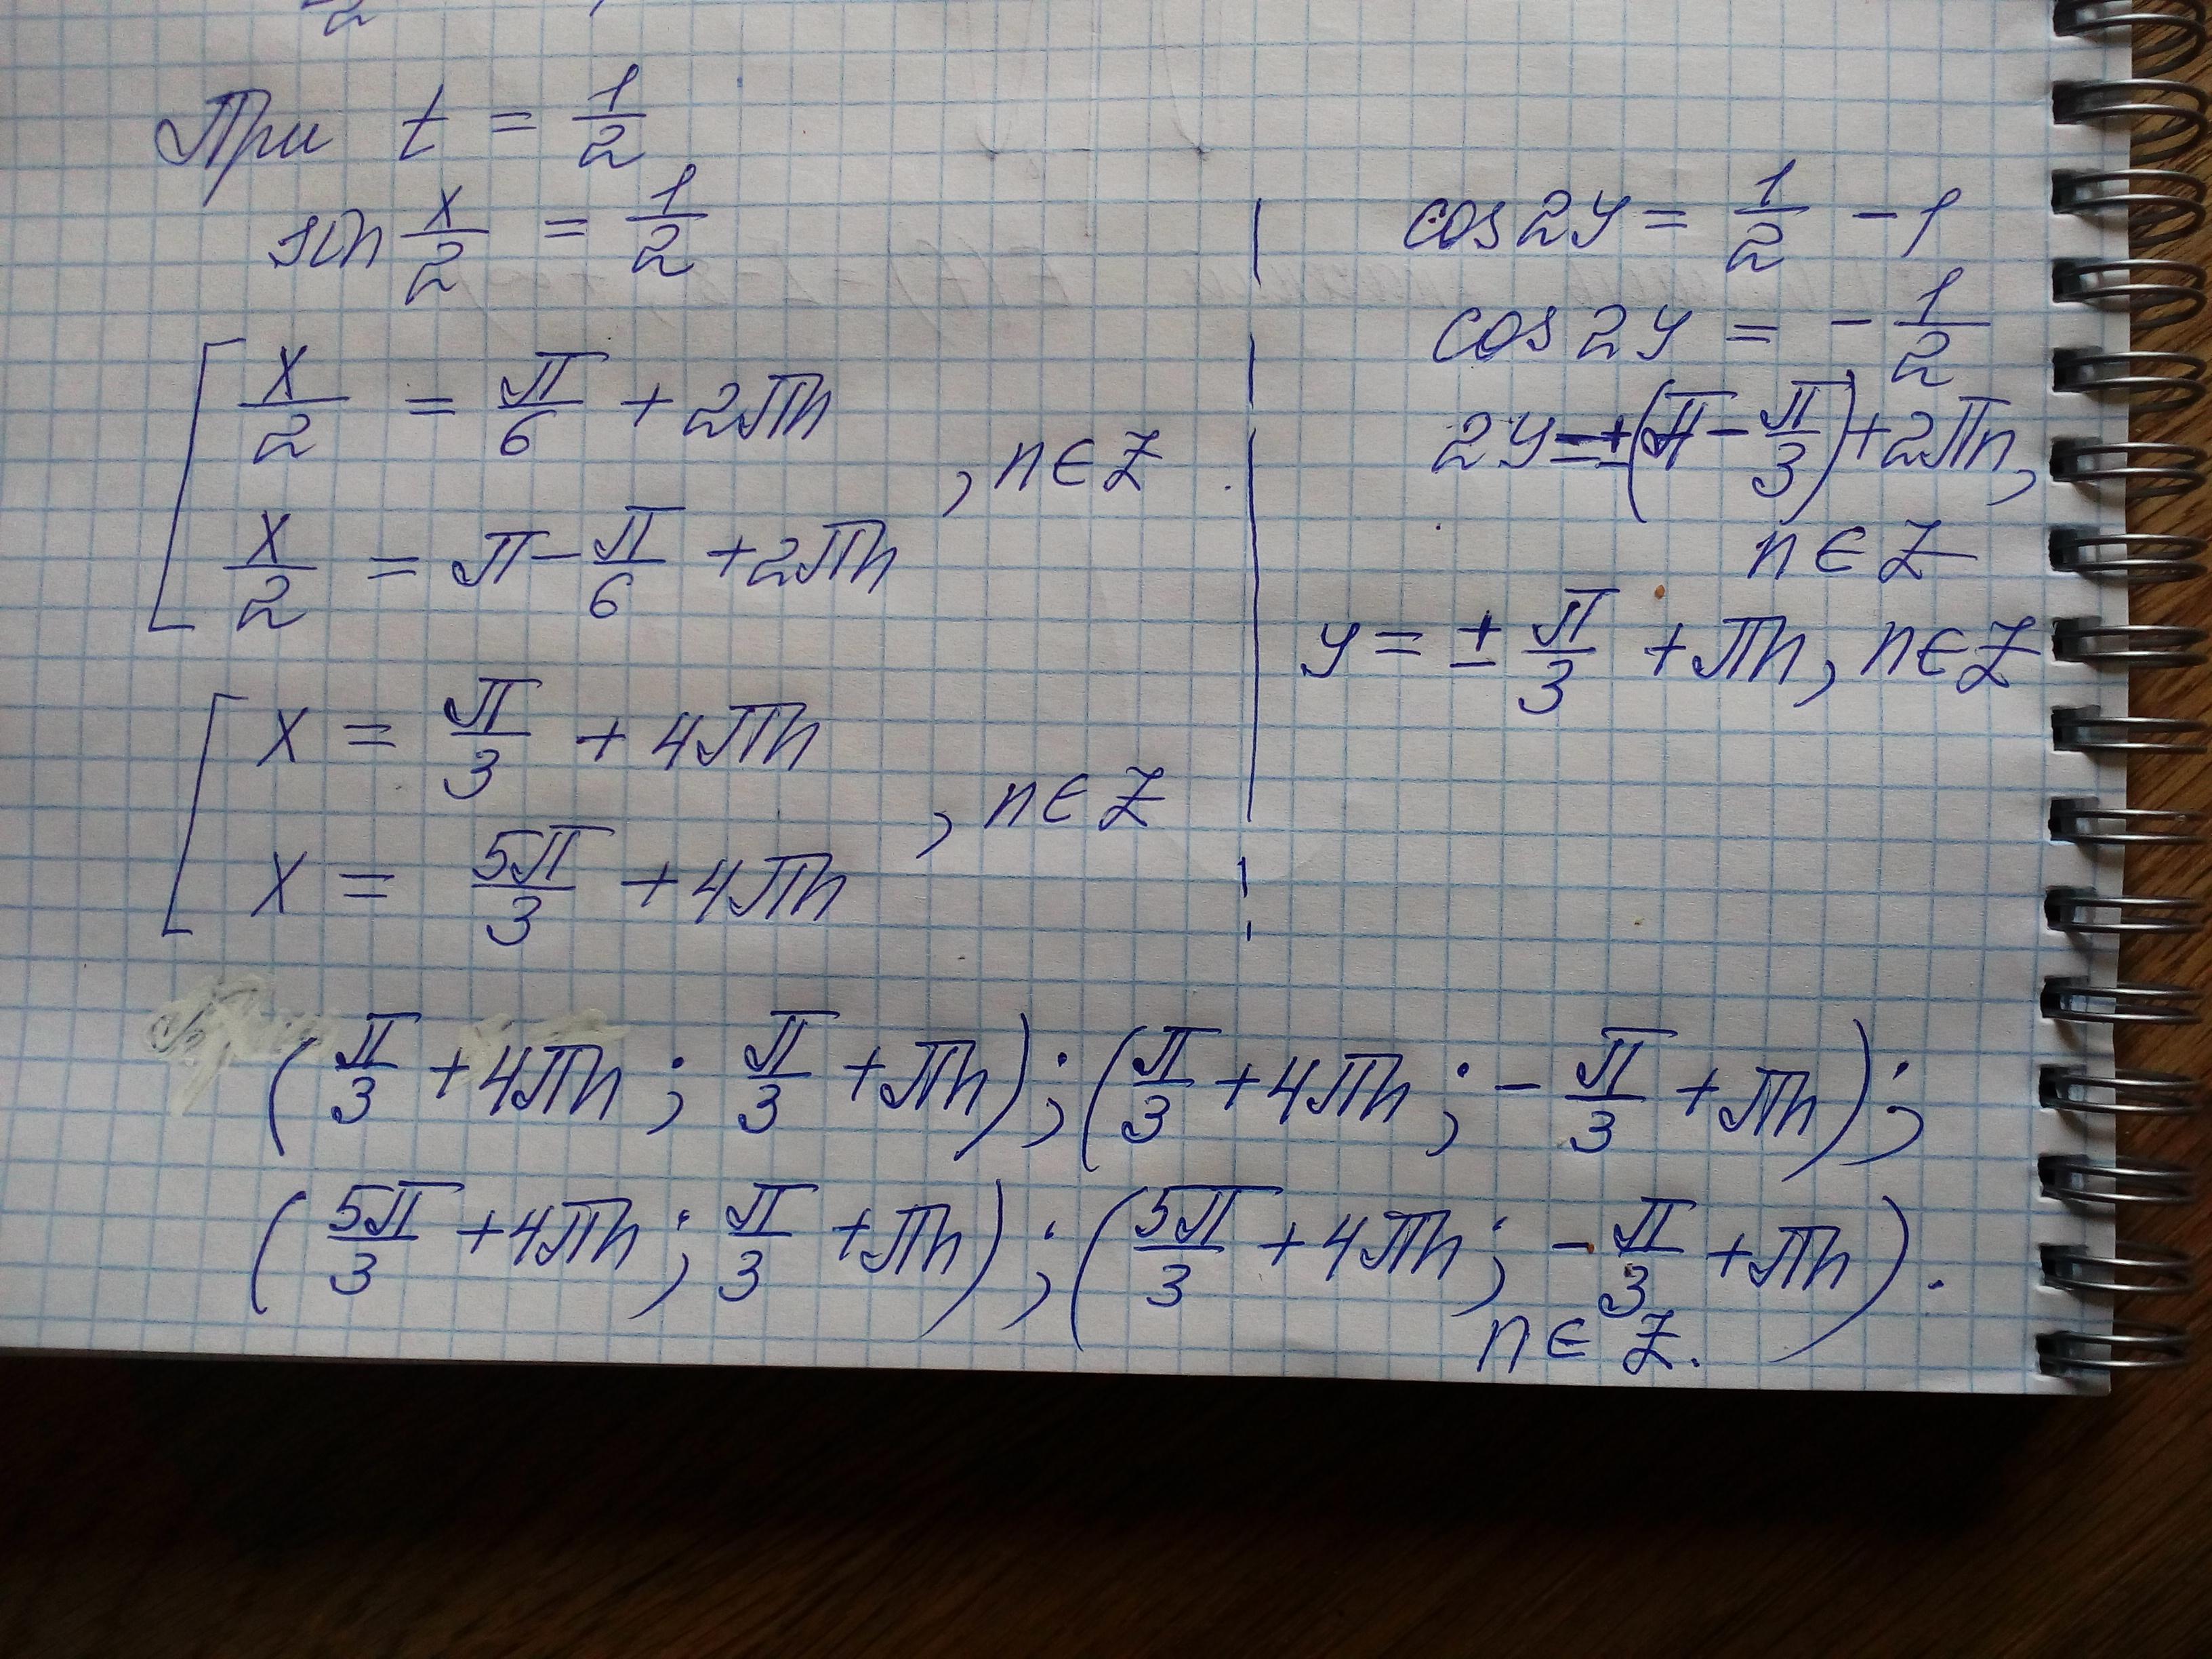 При t = 1/2
sin x/2 = 1/2
x/2 = π/6 + 2πn
, n ∈ Z
x/2 = π - π/6 + 2πn
x = π/3 + 4πn
, n ∈ Z
x = 5π/3 + 4πn
cos 2y = 1/2 - 1
cos 2y = - 1/2
2y = ±(π - π/3) + 2πn,
n ∈ Z
y = ± π/3 + πn, n ∈ Z
(π/3 + 4πn ; π/3 + πn) ; (π/3 + 4πn ; - π/3 + πn) ;
(5π/3 + 4πn ; π/3 + πn) ; (5π/3 + 4πn ; - π/3 + πn) .
n ∈ Z.